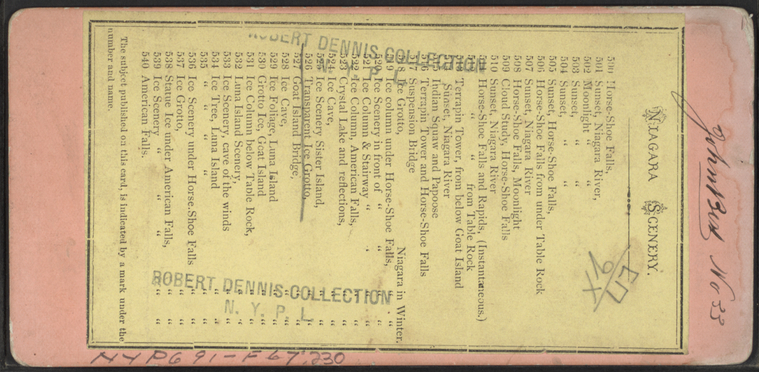 NIAGARA SCENERY.
500 Horse-Shoe Falls,
501 Sunset, Niagara River,
502 Moonlight " "
503 Sunset, " "
504 Sunset " "
505 Sunset, Horse-Shoe Falls,
506 Horse-Shoe Falls from under Table Rock
507 Sunset, Niagara River
508 Horse-Shoe Falls, Moonlight
509 Cloud Study, Horse-Shoe Falls
510 Sunset, Niagara River
Horse-Shoe Falls and Rapids, (Instantaneous.)
" " from Table Rock
Terrapin Tower, from below Goat Island
Sunset, Niagara River
Indian Squaw and Papoose
Terrapin Tower and Horse-Shoe Falls
517 Suspension Bridge
Ice Grotto, Niagara in Winter.
Ice column under Horse-Shoe Falls, "
Ice Scenery in front of " "
Ice Column & Stairway " "
522 Ice Column, American Falls, "
523 Crystal Lake and reflections, "
524 Ice Cave, "
525 Ice Scenery Sister Island, "
526 Transparent Ice Grotto, "
527 Goat Island Bridge, "
528 Ice Cave, "
529 Ice Foliage, Luna Island "
530 Grotto Ice, Goat Island "
531 Ice Column below Table Rock, "
532 Luna Island Scenery "
533 Ice Scenery, cave of the winds "
534 Ice Tree, Luna Island "
535 " " " "
536 Ice Scenery under Horse-Shoe Falls "
537 Ice Grotto, "
538 Spring Ice under American Falls, "
539 Ice Scenery " " "
540 American Falls.
The subject published on this card, is indicated by a mark under the
number and name.
ROBERT DENNIS COLLECTION
ROBERT DENNIS COLLECTION
N. Y. P. L.
No 33
NYPG91-F67.230